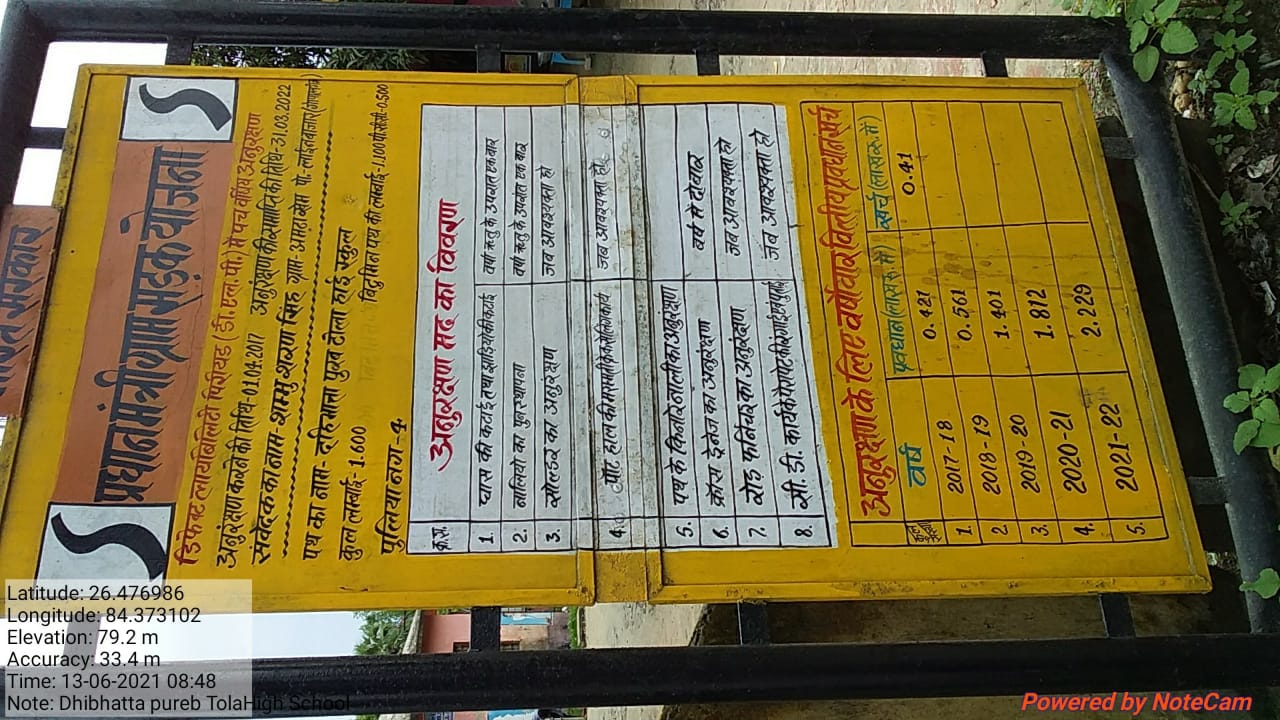 भारत सरकार
प्रधानमंत्री ग्राम सड़क योजना
डिफेक्ट लायबिलिटी पिरियड (डी.एल.पी.) में पंच वर्षीय अनुरक्षण
अनुरक्षण करने की तिथि- 01.04.2017 अनुरक्षण की समाप्ति की तिथि- 31.03.2022
संवेदक का नाम- शम्भु शरण सिंह ग्राम- अमठा खेम पो.- लाईनबाजार (गोपालगंज)
पथ का नाम- दहिभाता पुरब टोला हाई स्कुल
कुल लम्बाई- 1.600 बिटुमिन पथ की लम्बाई- 1.100 पी.सी.सी.-0.500
पुलिया नग- 4
अनुरक्षण मद का विवरण
क्र.सं.
1. घास की कटाई तथा झाडियों की कटाई वर्षा ऋतु के उपरांत एक बार
2. नालियो का पुनः स्थापना वर्षा ऋतु के उपरांत एक बार
3. सोल्डर का अनुरक्षण जब आवश्यक्ता हो
4. पॉट होल की मरम्मती जब आवश्यक्ता हो
5. पथ के किनारे नाली का अनुरक्षण
6. क्रॉस ड्रेनेज का अनुरंक्षण वर्ष मे दो बार
7. रोड फर्निचर का अनुरक्षण जब आवश्यक्ता हो
8. सी. डी. कार्य के पेरापेट की रंगाई एवं पुताई जब आवश्यक्ता हो
अनुरक्षण के लिए वर्षवार वित्तीय प्रवधान खर्च
वर्ष प्रवधान (लाख रू. में) खर्च (लाख रू. में)
1. 2017-18 0.421 0.41
2 2018-19 0.561
3. 2019-20 1.401
4. 2020-21 1.812
5. 2021-22 2.229
Latitude: 26.476986
Longitude: 84.373102
Elevation: 79.2 m
Accuracy: 33.4 m
Time: 13-06-2021 08:48
Note: Dhibhatta pureb TolaHigh School
Powered by NoteCam